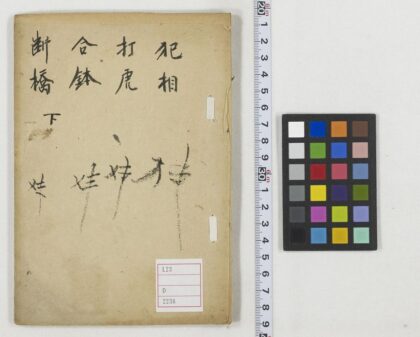 犯相
打虎
合鉢
断橋
下
112
D
2236
20
1
2
3
4
5
6
7
8
9
30
1
2
3
4
5
6
7
8
9